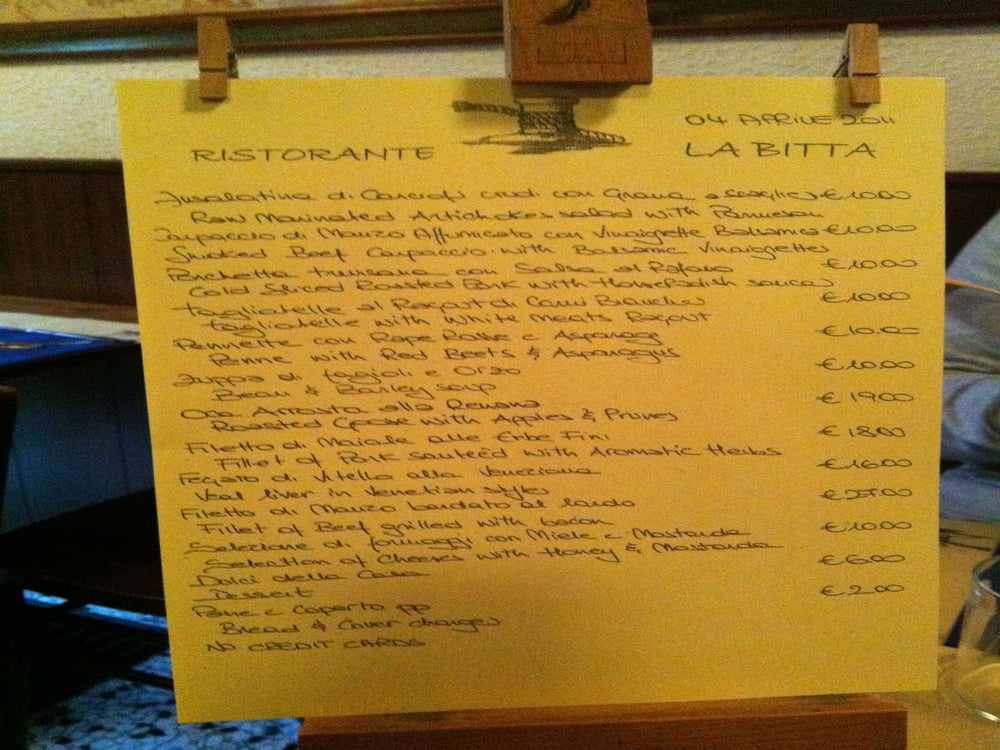 04 APRILE 2011
RISTORANTE LA BITTA
Insalatina di Carciofi crudi con Grana a scaglie €10.00
Raw Marinated Artichokes salad with Parmesan
Carpaccio di Manzo Affumicato con Vinaigrette Balsamica €10.00
Smoked Beef Carpaccio with Balsamic Vinaigrette
Porchetta trevisana con Salsa al Rafano €10.00
Cold Sliced Roasted Pork with Horseradish sauce
Tagliatelle al Ragout di Carni Bianche €10.00
Tagliatelle with White Meats Ragout
Pennette con Rape Rosse e Asparagi €10.00
Penne with Red Beets & Asparagus
Zuppa di fagioli e Orzo €10.00
Bean & Barley soup
Oca Arrosto alla Romana €19.00
Roasted Goose with Apples & Prunes
Filetto di Maiale alle Erbe Fini €18.00
Fillet of Pork sauteèd with Aromatic Herbs
Fegato di Vitello alla Veneziana €16.00
Veal liver in Venetian style
Filetto di Manzo bardato al lardo €27.00
Fillet of Beef grilled with bacon
Selezione di formaggi con Miele e Mostarda €10.00
Selection of Cheeses with Honey & Mostarda
Dolci della Casa €6.00
Dessert
Pane e Coperto pp €2.00
Bread & Cover charges
NO CREDIT CARDS